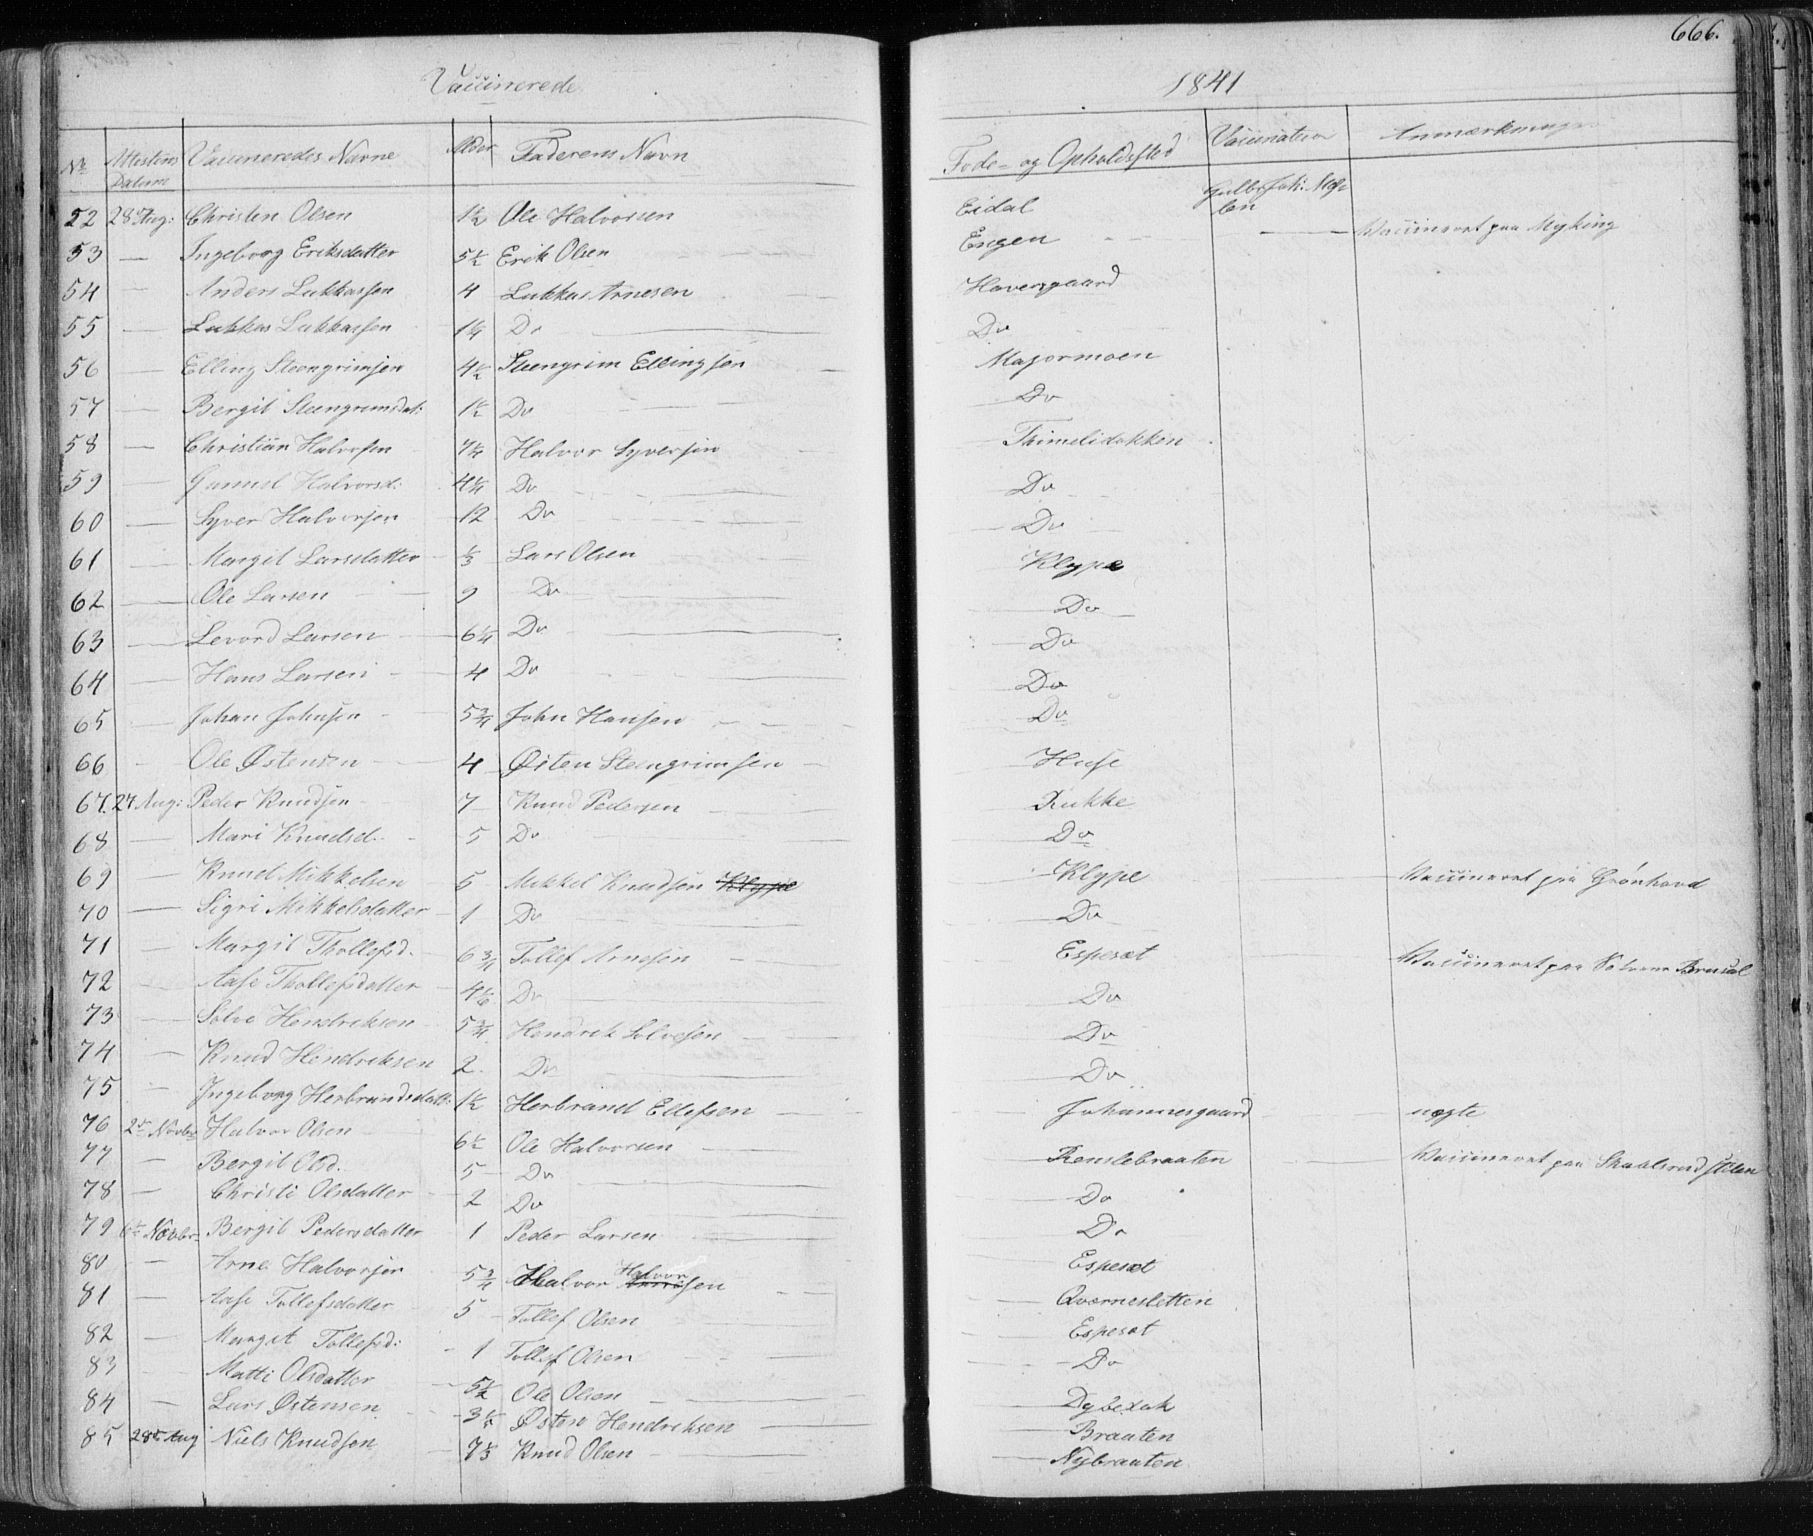 666.
Vaccinerede 1841
No Attestens Datum Vaccineredes Navne Alder Faderens Navn Føde- og Opholdssted Vaccinateur Anmærkninger
52 28 Aug: Christen Olsen 1½ Ole Halvorsen Eidal Gulbr. Joh:
53 — Ingeborg Eriksdatter 5½ Erik Olsen Engen — Vaccineret paa Myking
54 — Anders Lukkassen 4 Lukkas Arnesen Haversgaard
55 — Lukkas Lukkassen 1¼ Do Do
56 — Elling Steengrimsen 4½ Steengrim Ellingsen Majormoen
57 — Bergit Steengrimsdat: 1½ Do Do
58 — Christian Halvorsen 7¼ Halvor Syversen Trimelidokken
59 — Gunnel Halvorsd: 4¼ Do Do
60 — Syver Halvorsen 12 Do Do
61 — Margit Larsdatter ⅓ Lars Olsen Klype
62 — Ole Larsen 9 Do Do
63 — Levord Larsen 6¼ Do Do
64 — Hans Larsen 4 Do Do
65 — Johan Johnsen 5¾ John Hansen Do
66 — Ole Østensen 4 Østen Steengrimsen Huse
67. 27 Aug: Peder Knudsen 7 Knud Pedersen Rukke
68 — Mari Knudsd. 5 Do Do
69 — Knud Mikkelsen 5 Mikkel Knudsen Klype Klype Vaccineret paa Grønhovd
70 — Sigri Mikkelsdatter 1 Do Do
71 — Margit Thollefsd. 6¾ Tollef Arnesen Espeset Vaccineret paa
72 — Aase Thollefsdatter 4⅙ Do Do
73 — Solve Hendriksen 5¾ Hendrik Solvesen Do
74 — Knud Hendriksen 2. Do Do
75 — Ingeborg Herbrandsdatt: 1½ Herbrand Ellefsen Johannesgaard nægte
76 2de Novbr Halvor Olsen 6½ Ole Halvorsen Renslebraaten Vaccineret paa
77 — Bergit Olsd. 5 Do Do
78 — Christi Olsdatter 2 Do Do
79 6te Novbr. Bergit Pedersdatter 1 Peder Larsen Espeset
80 — Arne Halvorsen 5¾ Halvor Halvorsen Qværnesletten
81 — Aase Tollefsdatter 5 Tollef Olsen Espeset
82 — Margit Tollefsd: 1 Tollef Olsen Do
83 — Matti Olsdatter 5½ Ole Olsen
84 — Lars Østensen Østen Hendriksen Braaten
85 28de Aug Niels Knudsen 7⅓ Knud Olsen Nybraaten